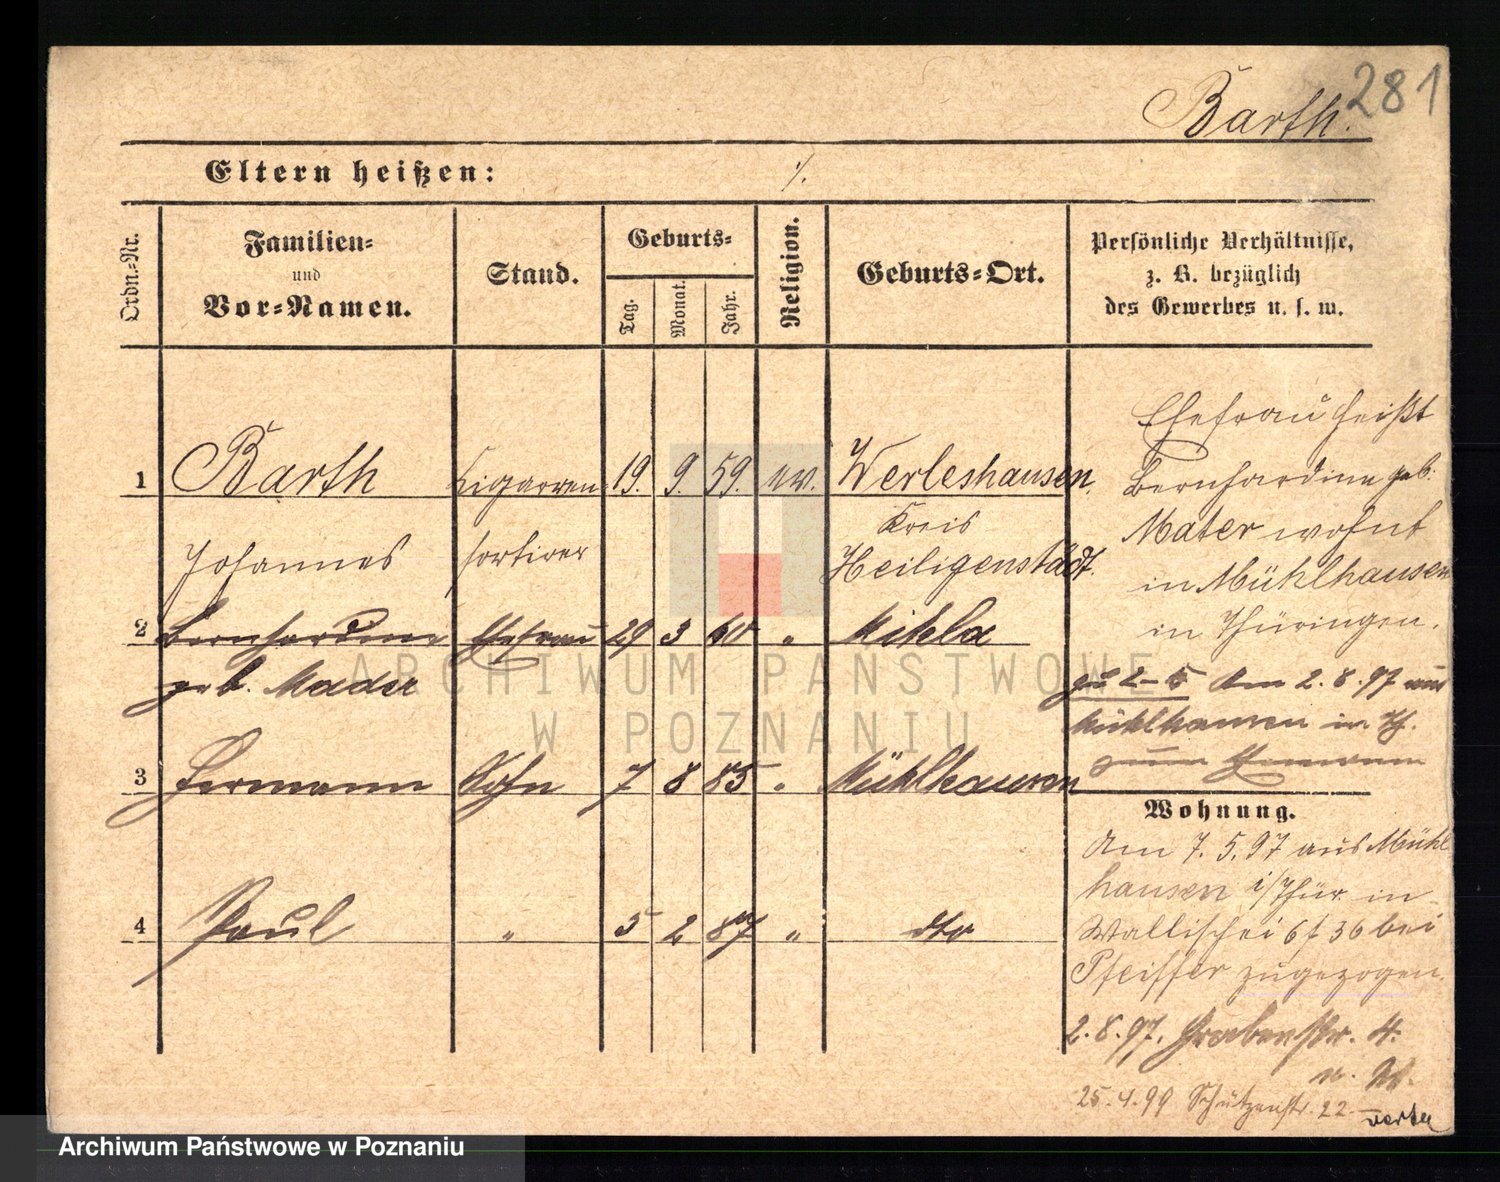 281
Barth.
Eltern heißen: ./.
Ordn.-Nr.
Familien-
und
Vor-Namen.
Stand.
Geburts-
Tag.
Monat.
Jahr.
Religion.
Geburts-Ort.
Persönliche Verhältnisse,
z. B. bezüglich
des Gewerbes u. s. w.
1 Barth Cigarren 19. 9. 59. ev. Werleshausen,
Kreis
Johannes sortirer Heiligenstadt.
2 Bernhardine Ehefrau 29 3 60 " Mihla
geb. Mader
3 Hermann Sohn 7 8 85 " Mühlhausen
4 Paul " 5 2 87 " dto
Ehefrau heißt
Bernhardine geb.
Mater wohnt
in Mühlhausen
in Thüringen.
zu 2-5 Am 2.8.97 aus
Mühlhausen in Th.
zum Ehemann
Wohnung.
Am 7.5.97 aus Mühl
hausen i/Thür. in
Wallischei 6 f 36 bei
Pfeiffer zugezogen.
2.8.97. Grabenstr. 4.
25.4.99 Schützenstr. 22.
verte
ARCHIWUM PAŃSTWOWE
W POZNANIU
Archiwum Państwowe w Poznaniu